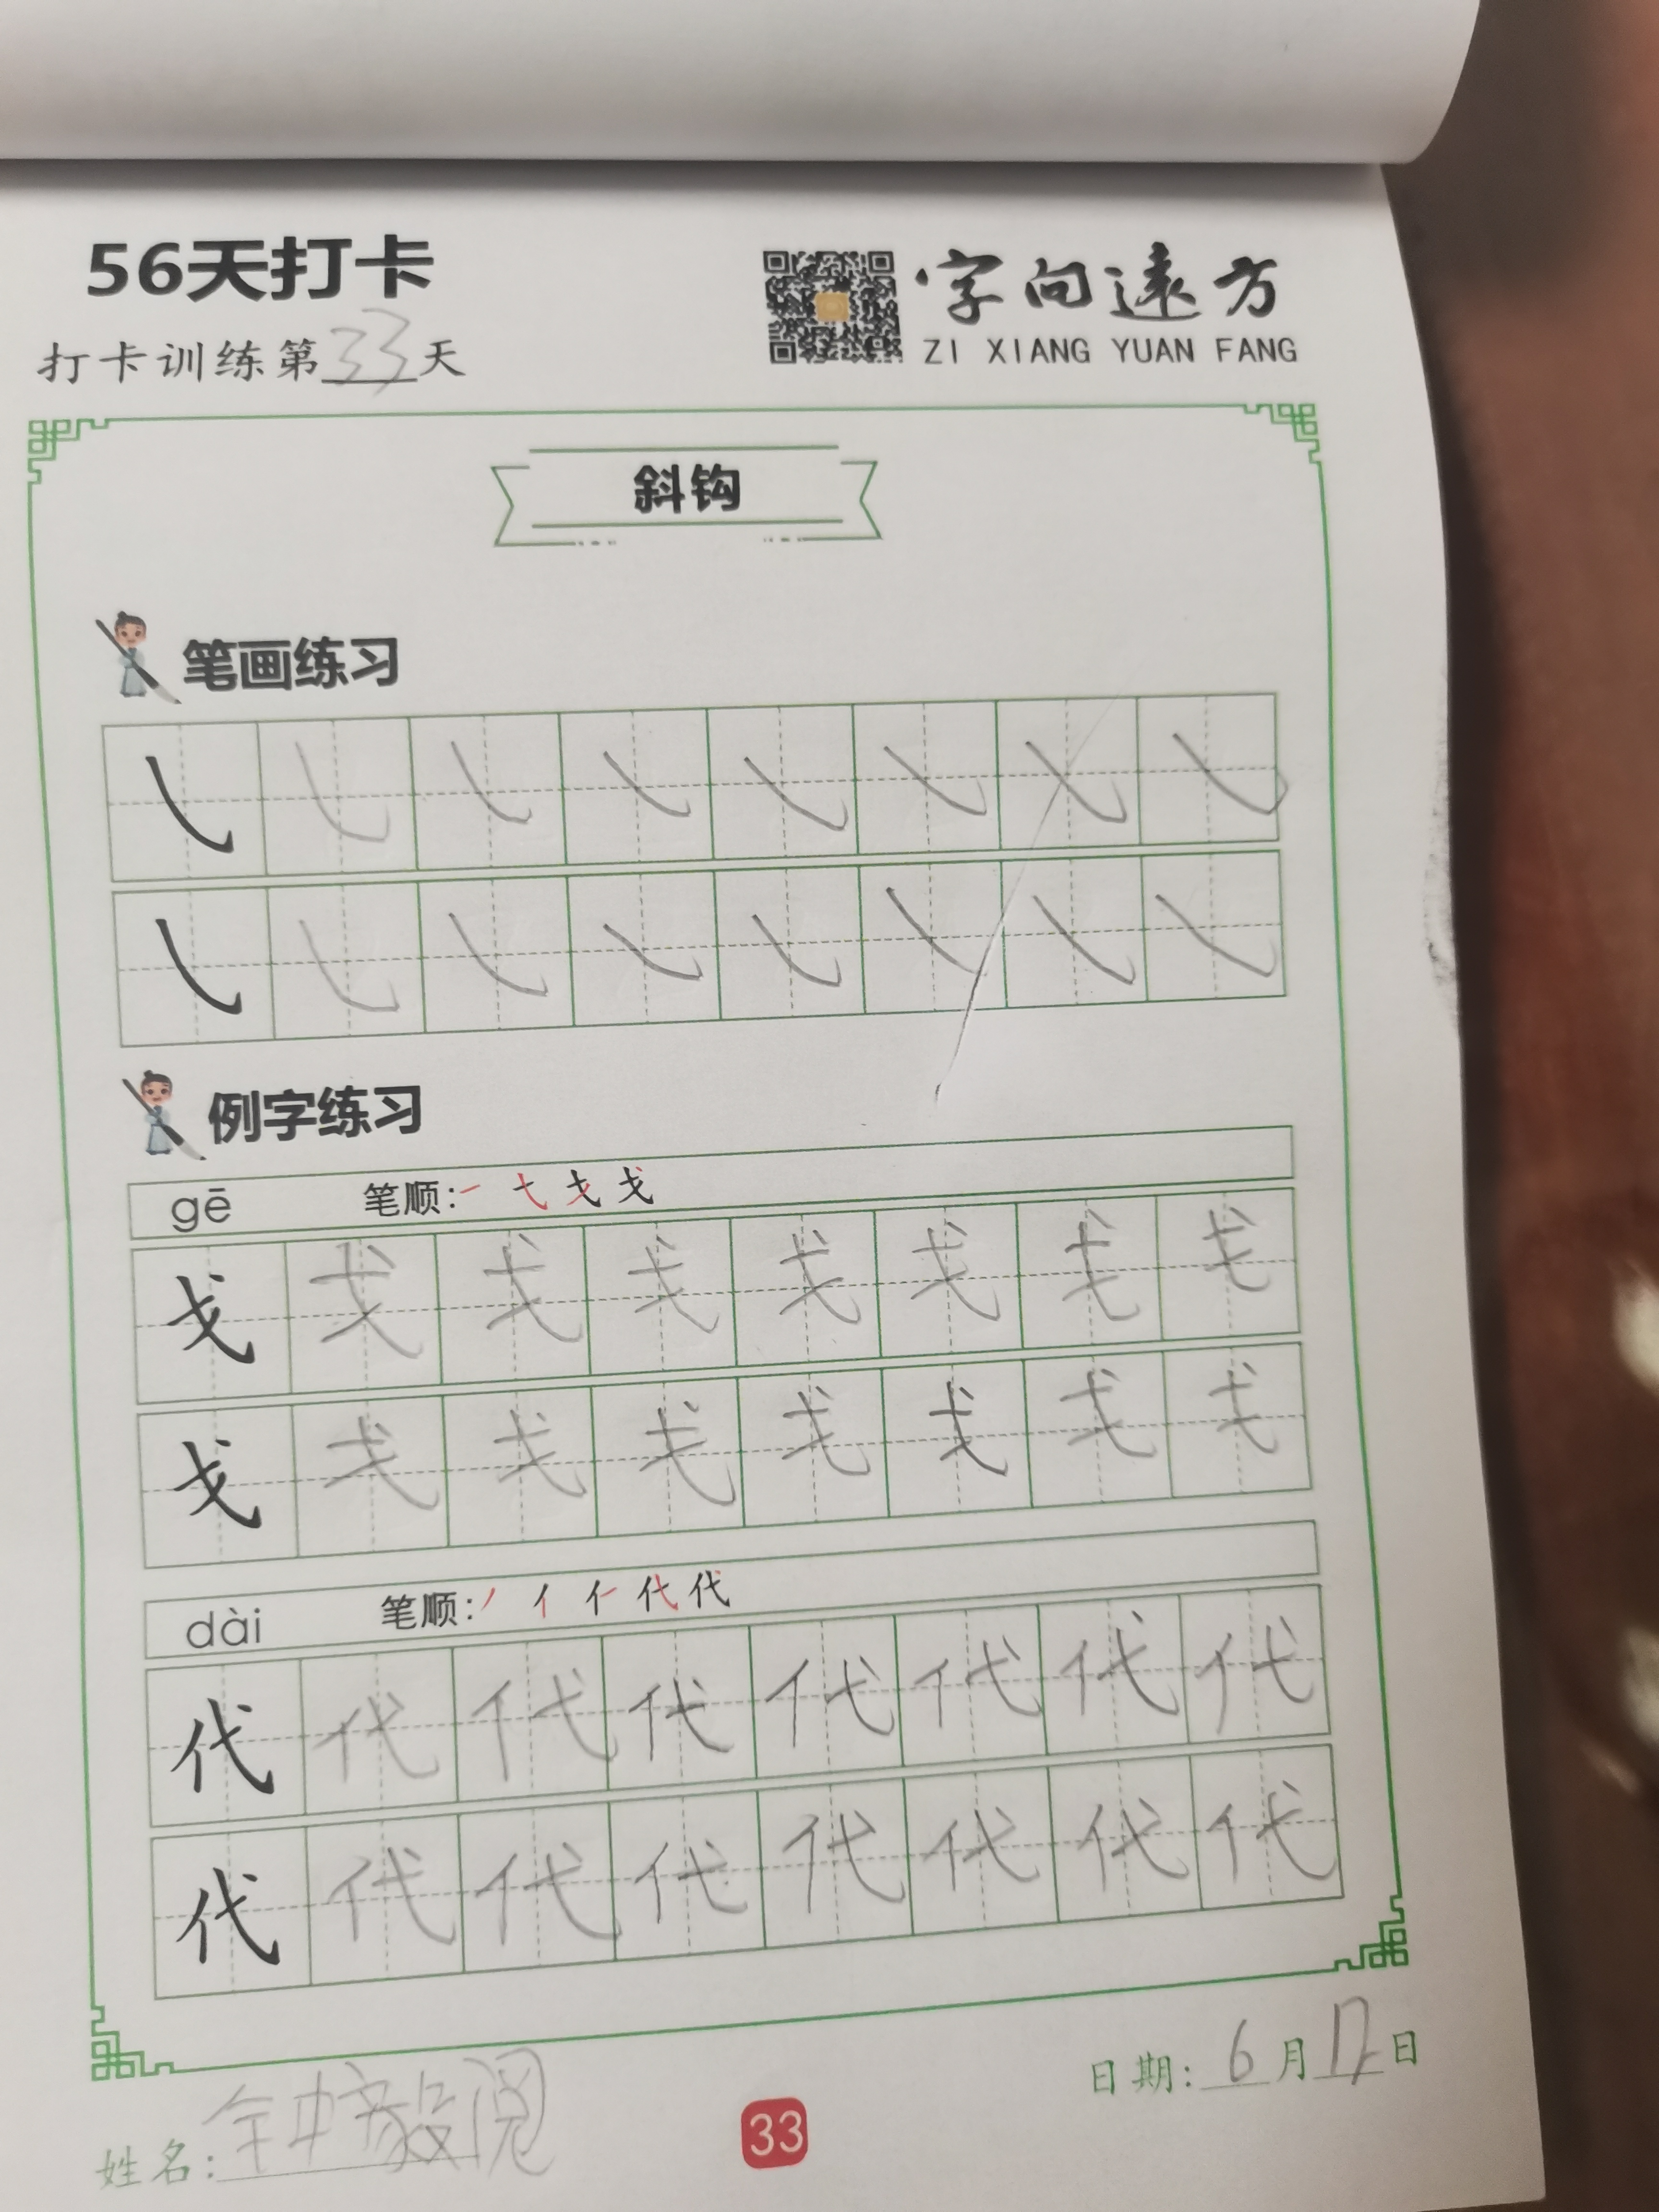 56天打卡
打卡训练第33天
字向遠方
ZI XIANG YUAN FANG
斜钩
笔画练习
例字练习
gē 笔顺:
戈 戈 戈 戈 戈 戈 戈 戈
戈 戈 戈 戈 戈 戈 戈 戈
dài 笔顺:
代 代 代 代 代 代 代 代
代 代 代 代 代 代 代 代
日期: 6月17日
姓名: 钟毅阅
33